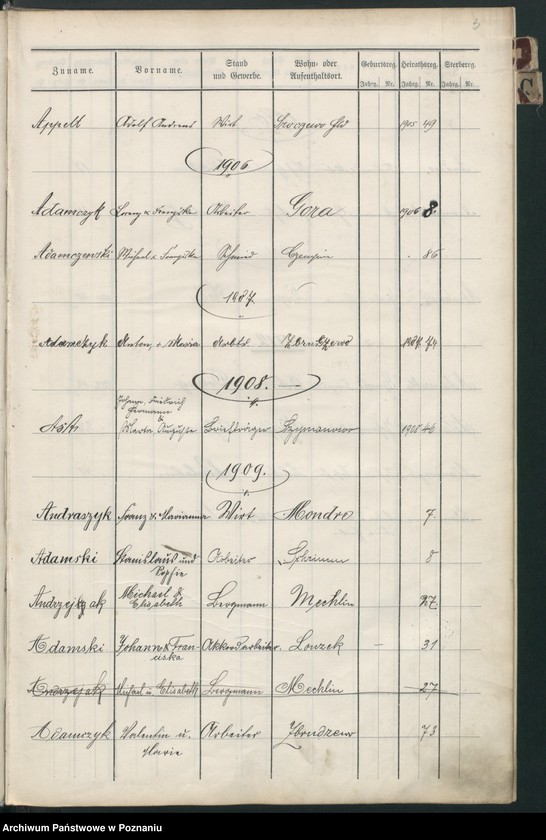 3
Zuname. Vorname. Stand und Gewerbe. Wohn- oder Aufenthaltsort. Geburtsreg. Heirathsreg. Sterbereg.
Jahrg. Nr. Jahrg. Nr. Jahrg. Nr.
C
Appelt Adolf Andreas Wirt 1905 49
1906
Adamczyk Lorenz u Franziska Arbeiter Gora 1906 8.
Adamczewski Michael u Franziska Schmied 86
Adamczyk Anton, u Maria 74
1908.
Johann, Friedrich
Hermann
&
Marta Auguste Briefträger Szymanowo 1908 46
1909.
Andraszyk Franz u Marianna Wirt Mondre 7.
Adamski Stanislaus und Sophie Arbeiter Schrimm 8
Andrzejczak Michael & Elisabeth Bergmann Mechlin 27.
Adamski Johann & Franciska Akkordarbeiter Louzek – 31
Andrzejak Michael u Elisabeth Bergmann Mechlin 27
Adamczyk Valentin u. Marie Arbeiter Zbrudzewo 73
Archiwum Państwowe w Poznaniu